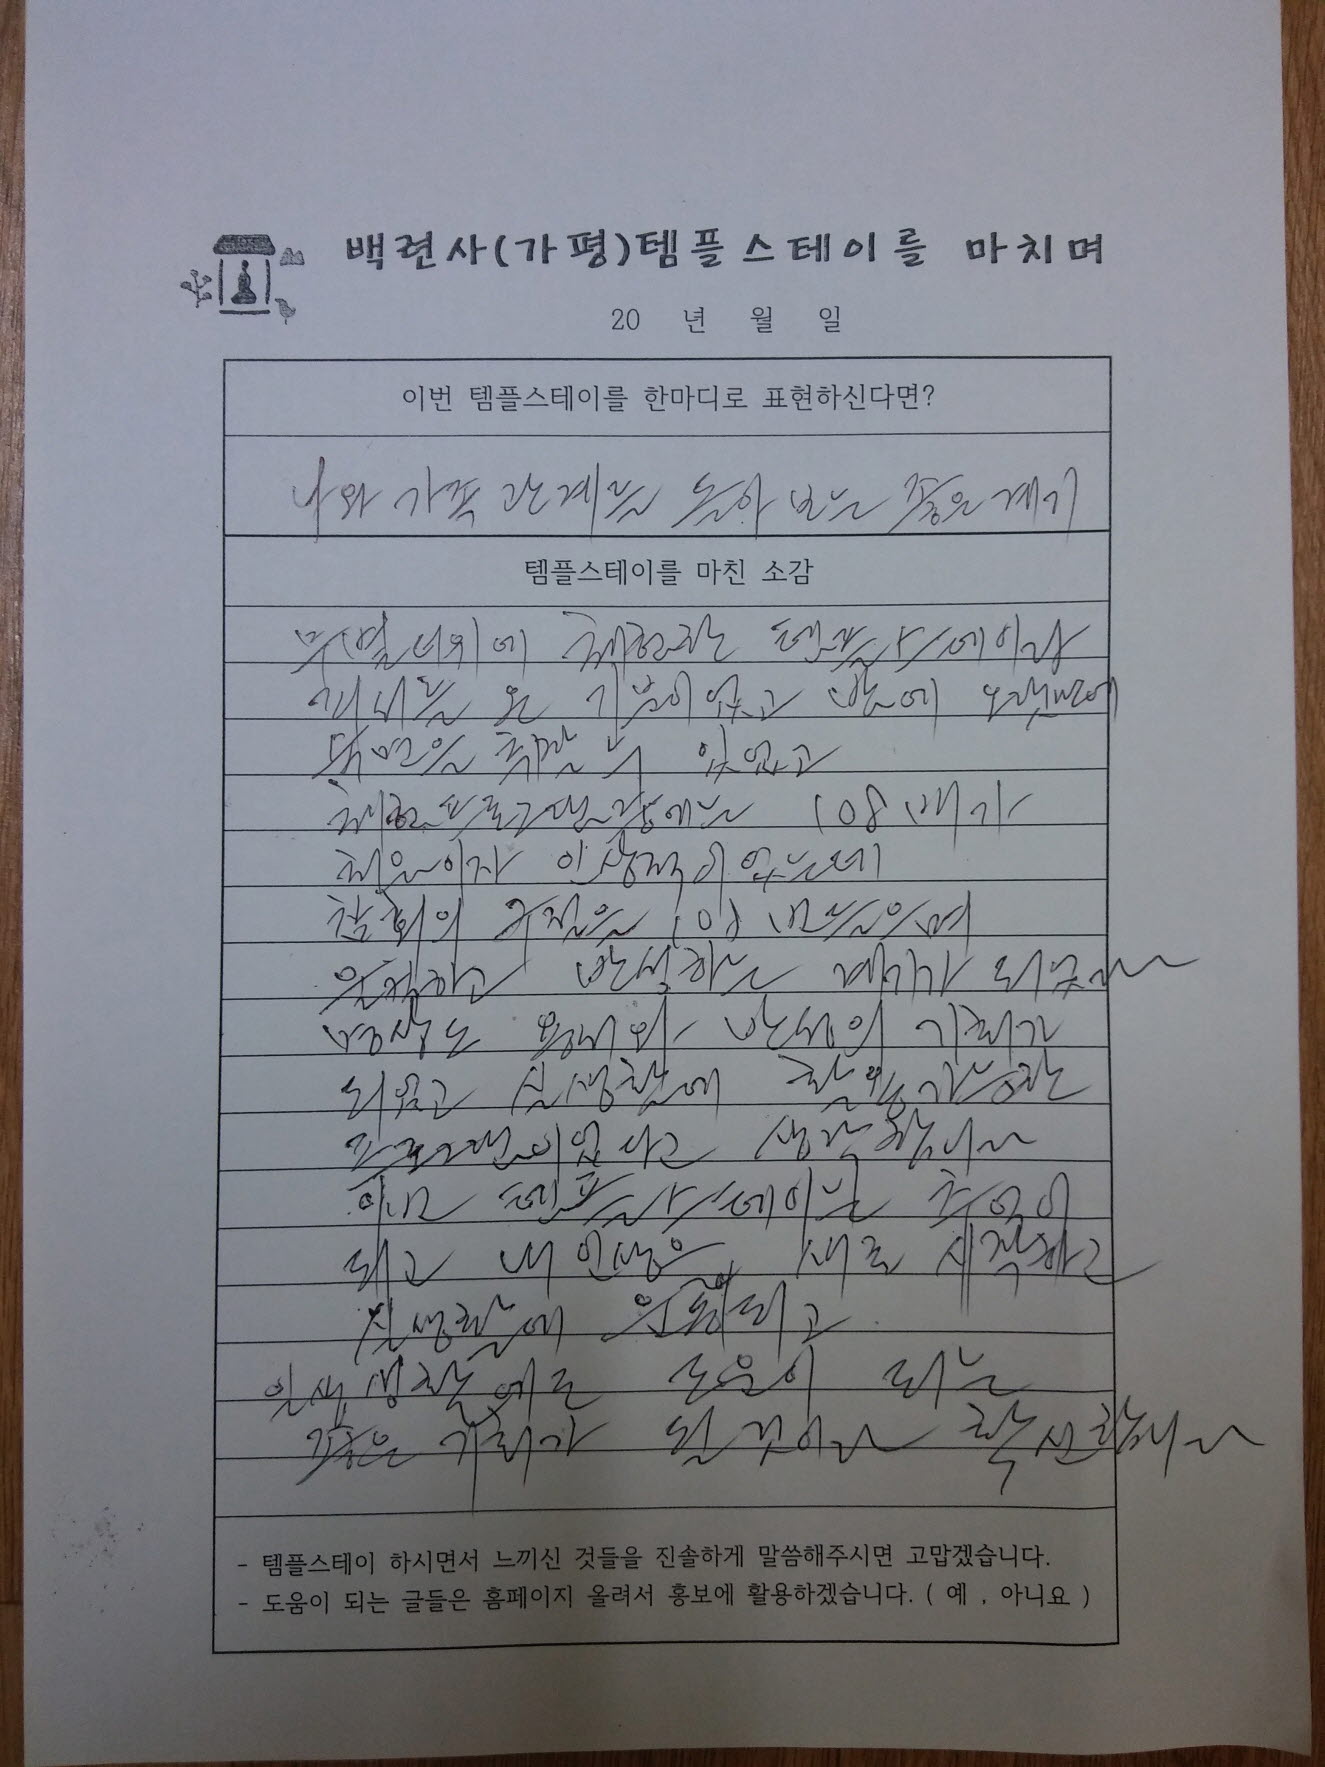 백련사(가평)템플스테이를 마치며
20 년 월 일
이번 템플스테이를 한마디로 표현하신다면?
나와 가족 관계를 돌아 보는 좋은 계기
템플스테이를 마친 소감
무더위에 체험하는 템플스테이라
피서를 온 기분이었고 밤에 오랫만에
숙면을 취할 수 있었고
체험프로그램중에는 108배가
처음이자 인상적이었는데
참회의 구절을 108번 들으며
반성하는 계기가 되었다
명상도 반성의 기회가
되었고 실생활에 활용가능한
프로그램이었다고 생각합니다
이번 템플스테이는 추억이
되고 내 인생을 새로 시작하고
실생활에 되고
생활에도 도움이 되는
좋은 기회가 될 것이라 확신합니다
- 템플스테이 하시면서 느끼신 것들을 진솔하게 말씀해주시면 고맙겠습니다.
- 도움이 되는 글들은 홈페이지 올려서 홍보에 활용하겠습니다. ( 예 , 아니요 )